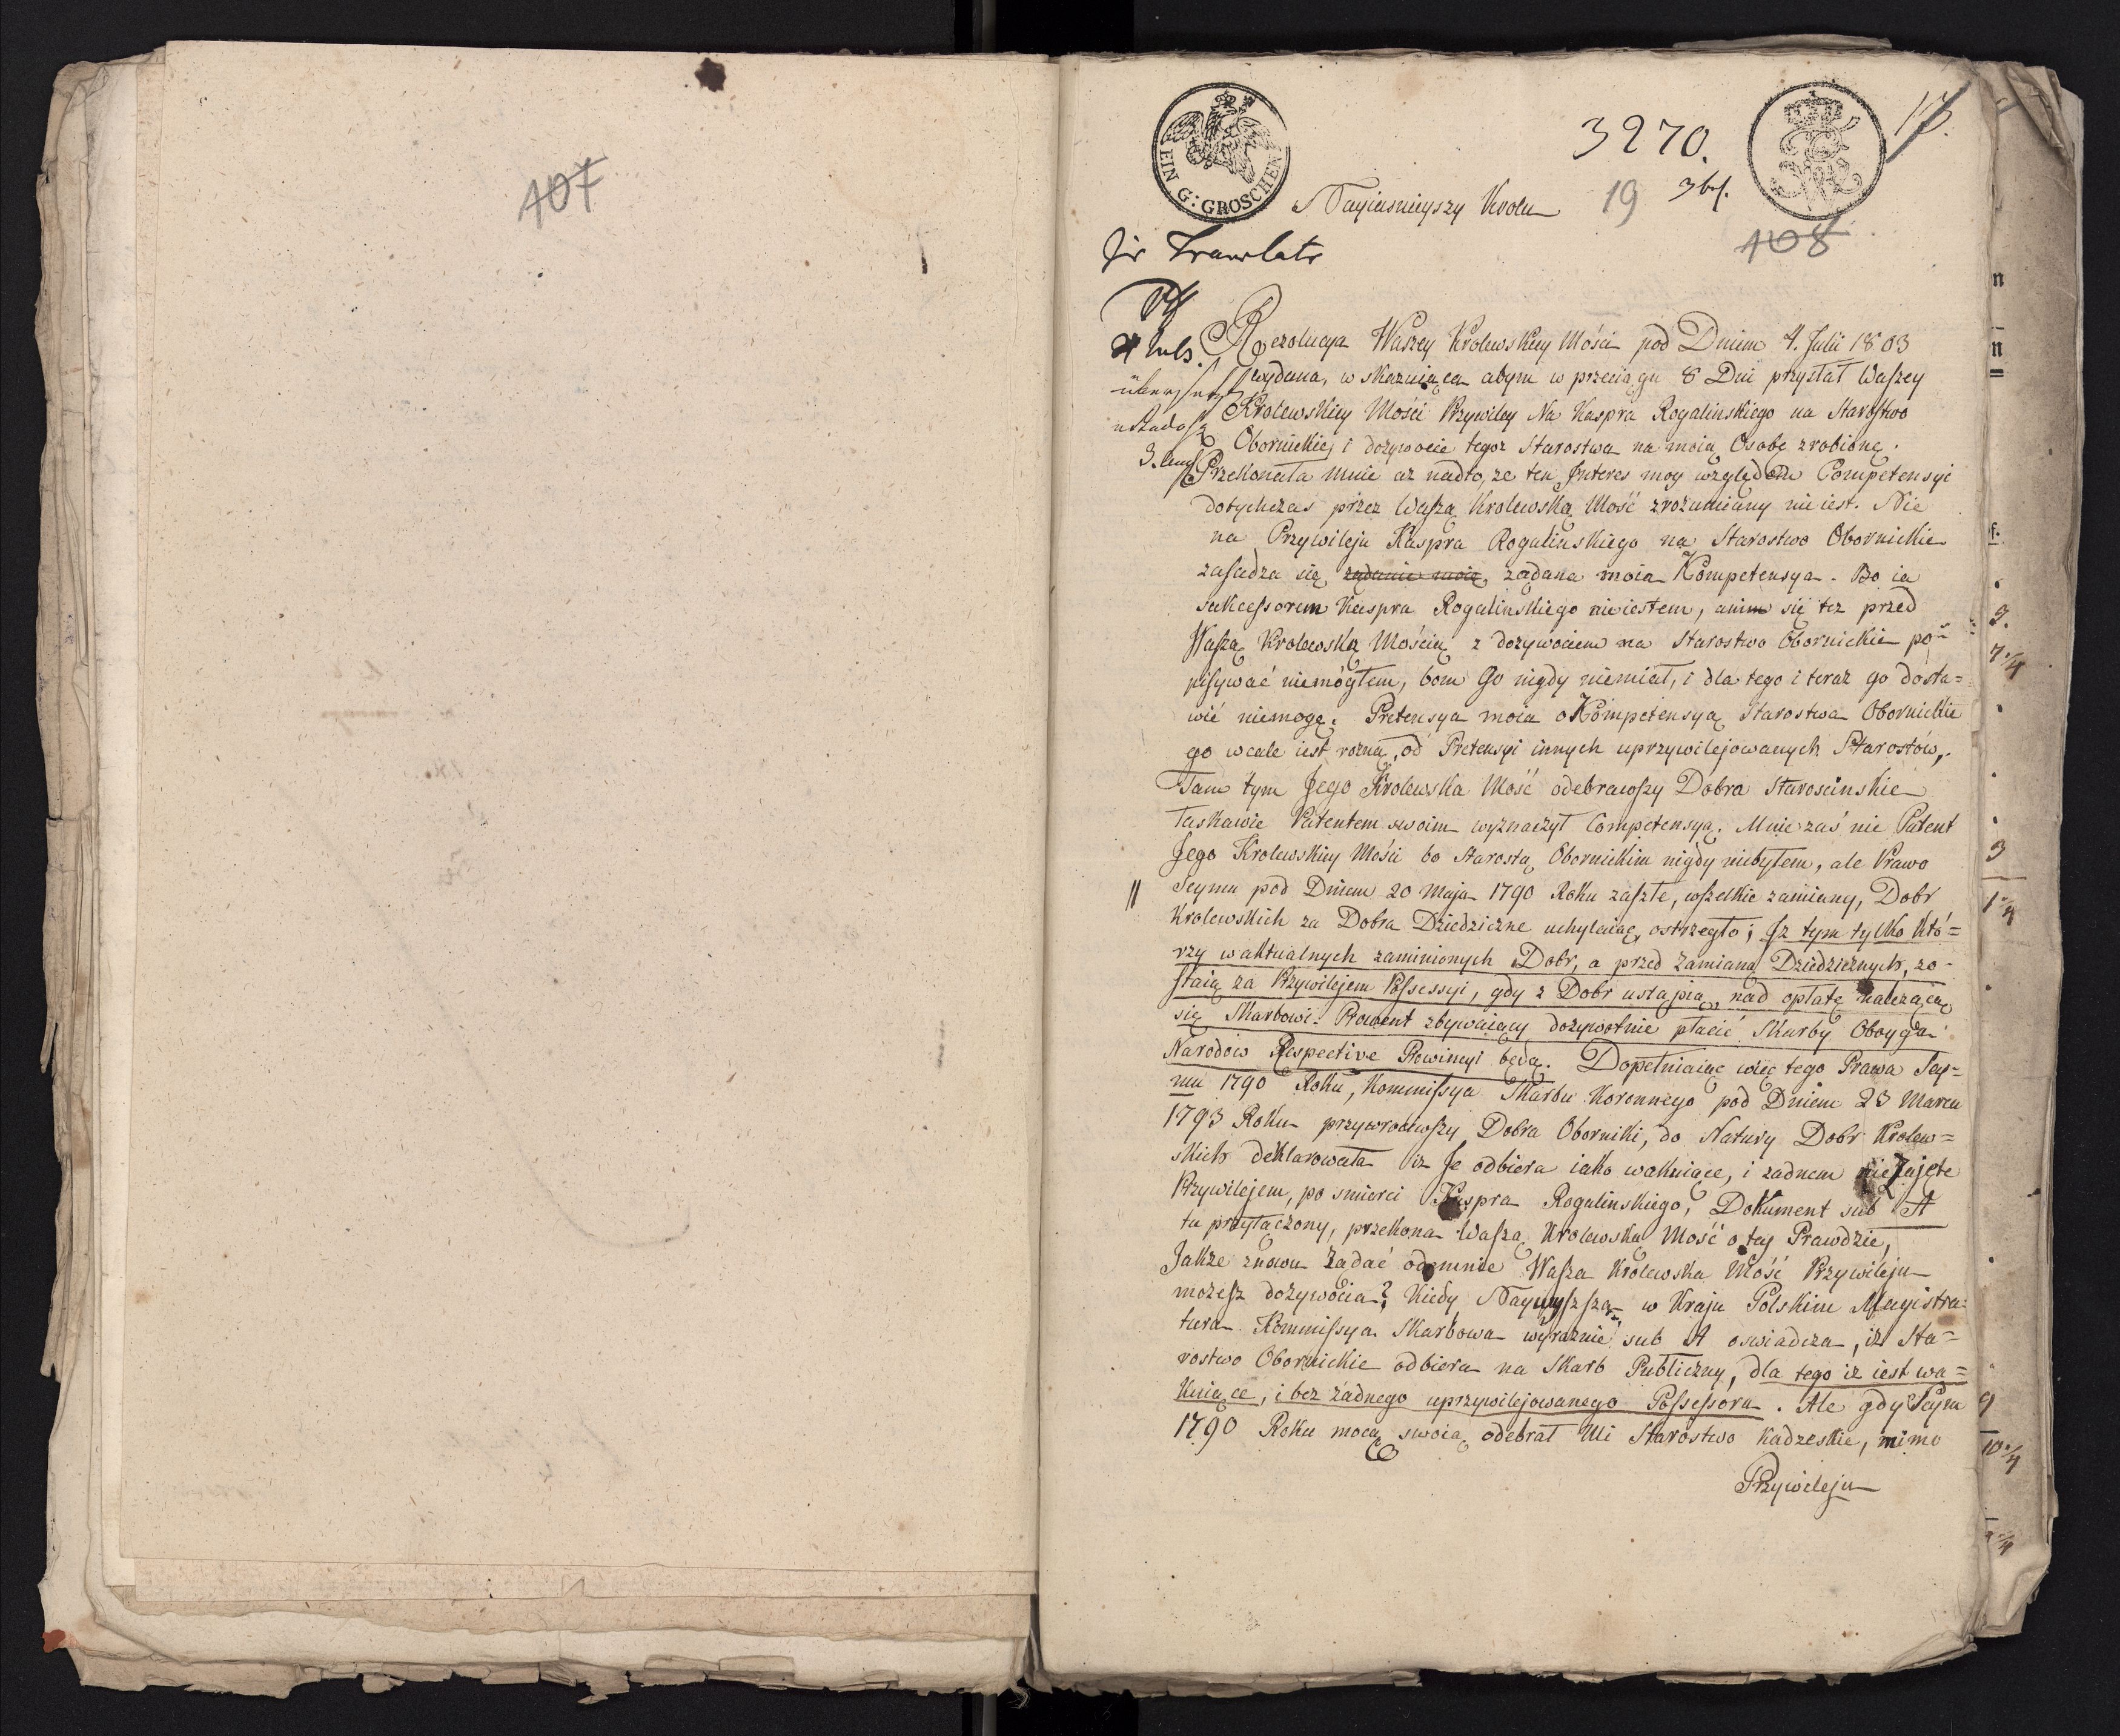 107
EIN G: GROSCHEN
3270.
17.
Nayiasnieyszy Krolu
19
108
Rezolucya Waszey Krolewskiey Mości pod Dniem 4. Julii 1803
wydana, wskazuiąca abym w przeciągu 8 Dni przysłał Waszey
Krolewskiey Mości Przywiley Na Kaspra Rogalinskiego na Starostwo
Obornickie, i dozywocie tegoz Starostwa na moią Osobę zrobione.
Przekonała mnie az nadto, ze ten Jnteres moy względem Competensyi
dotychczas przez Waszą Krolewską Mość zrozumiany nie iest. Nie
na Przywileju Kaspra Rogalinskiego na Starostwo Obornickie
zasadza się, żądanie moie, ządana moia Kompetensya. Bo ia
sukcessorem Kaspra Rogalinskiego nieiestem, anim się tez przed
Waszą Krolewską Mością z dozywociem na Starostwo Obornickie po=
pisywać niemógłem, bom Go nigdy niemiał, i dla tego i teraz go dosta=
wić niemogę. Pretensya moia o Kompetensyą Starostwa Obornickie
go wcale iest rozna, od Pretensyi innych uprzywilejowanych Starostów,.
Tam tym Jego Krolewska Mość odebrawszy Dobra Staroscinskie
łaskawie Patentem swoim wyznaczył Competensyą. Mnie zaś nie Patent
Jego Krolewskiey Mości bo Starostą Obornickim nigdy niebyłem, ale Prawo
Seymu pod Dniem 20 Maja 1790 Roku zaszłe, wszelkie zamiany, Dobr
Krolewskich za Dobra Dziedziczne uchylaiąc, ostrzegło; Jz tym tylko któ=
rzy w aktualnych zaminionych Dobr, a przed Zamianą Dziedzicznych, zo=
staią za Przywilejem Possessyi, gdy z Dobr ustąpią, nad opłatę nalezącą
się Skarbowi. Prowent zbywaiący dozywotnie płacić Skarby Oboyga
Narodow Respective Prowincyi będą. Dopełniaiąc więc tego Prawa Sey=
mu 1790 Roku, Kommissya Skarbu Koronnego pod Dniem 23 Marca
1793 Roku przywrociwszy Dobra Oborniki, do Natury Dobr Krolew=
skich deklarowała iz Je odbiera iako wakuiące, i zadnem niezajęte
Przywilejem, po smierci Kaspra Rogalinskiego, Dokument sub A
tu przyłączony, przekona Waszą Krolewską Mość o tey Prawdzie,
Jakze znowu Żądać odemnie Wasza Krolewska Mość Przywileju
możesz dożywocia? Kiedy Naywyższa w Kraju Polskim Magistra=
tura Kommissya Skarbowa wyraznie sub A oswiadcza, iz Sta=
rostwo Obornickie odbiera na Skarb Publiczny, dla tego iz iest wa=
kuiące, i bez żadnego uprzywilejowanego Possessora. Ale gdy Seym
1790 Roku mocą swoią odebrał Mi Starostwo Kadzeskie, mimo
Przywileju